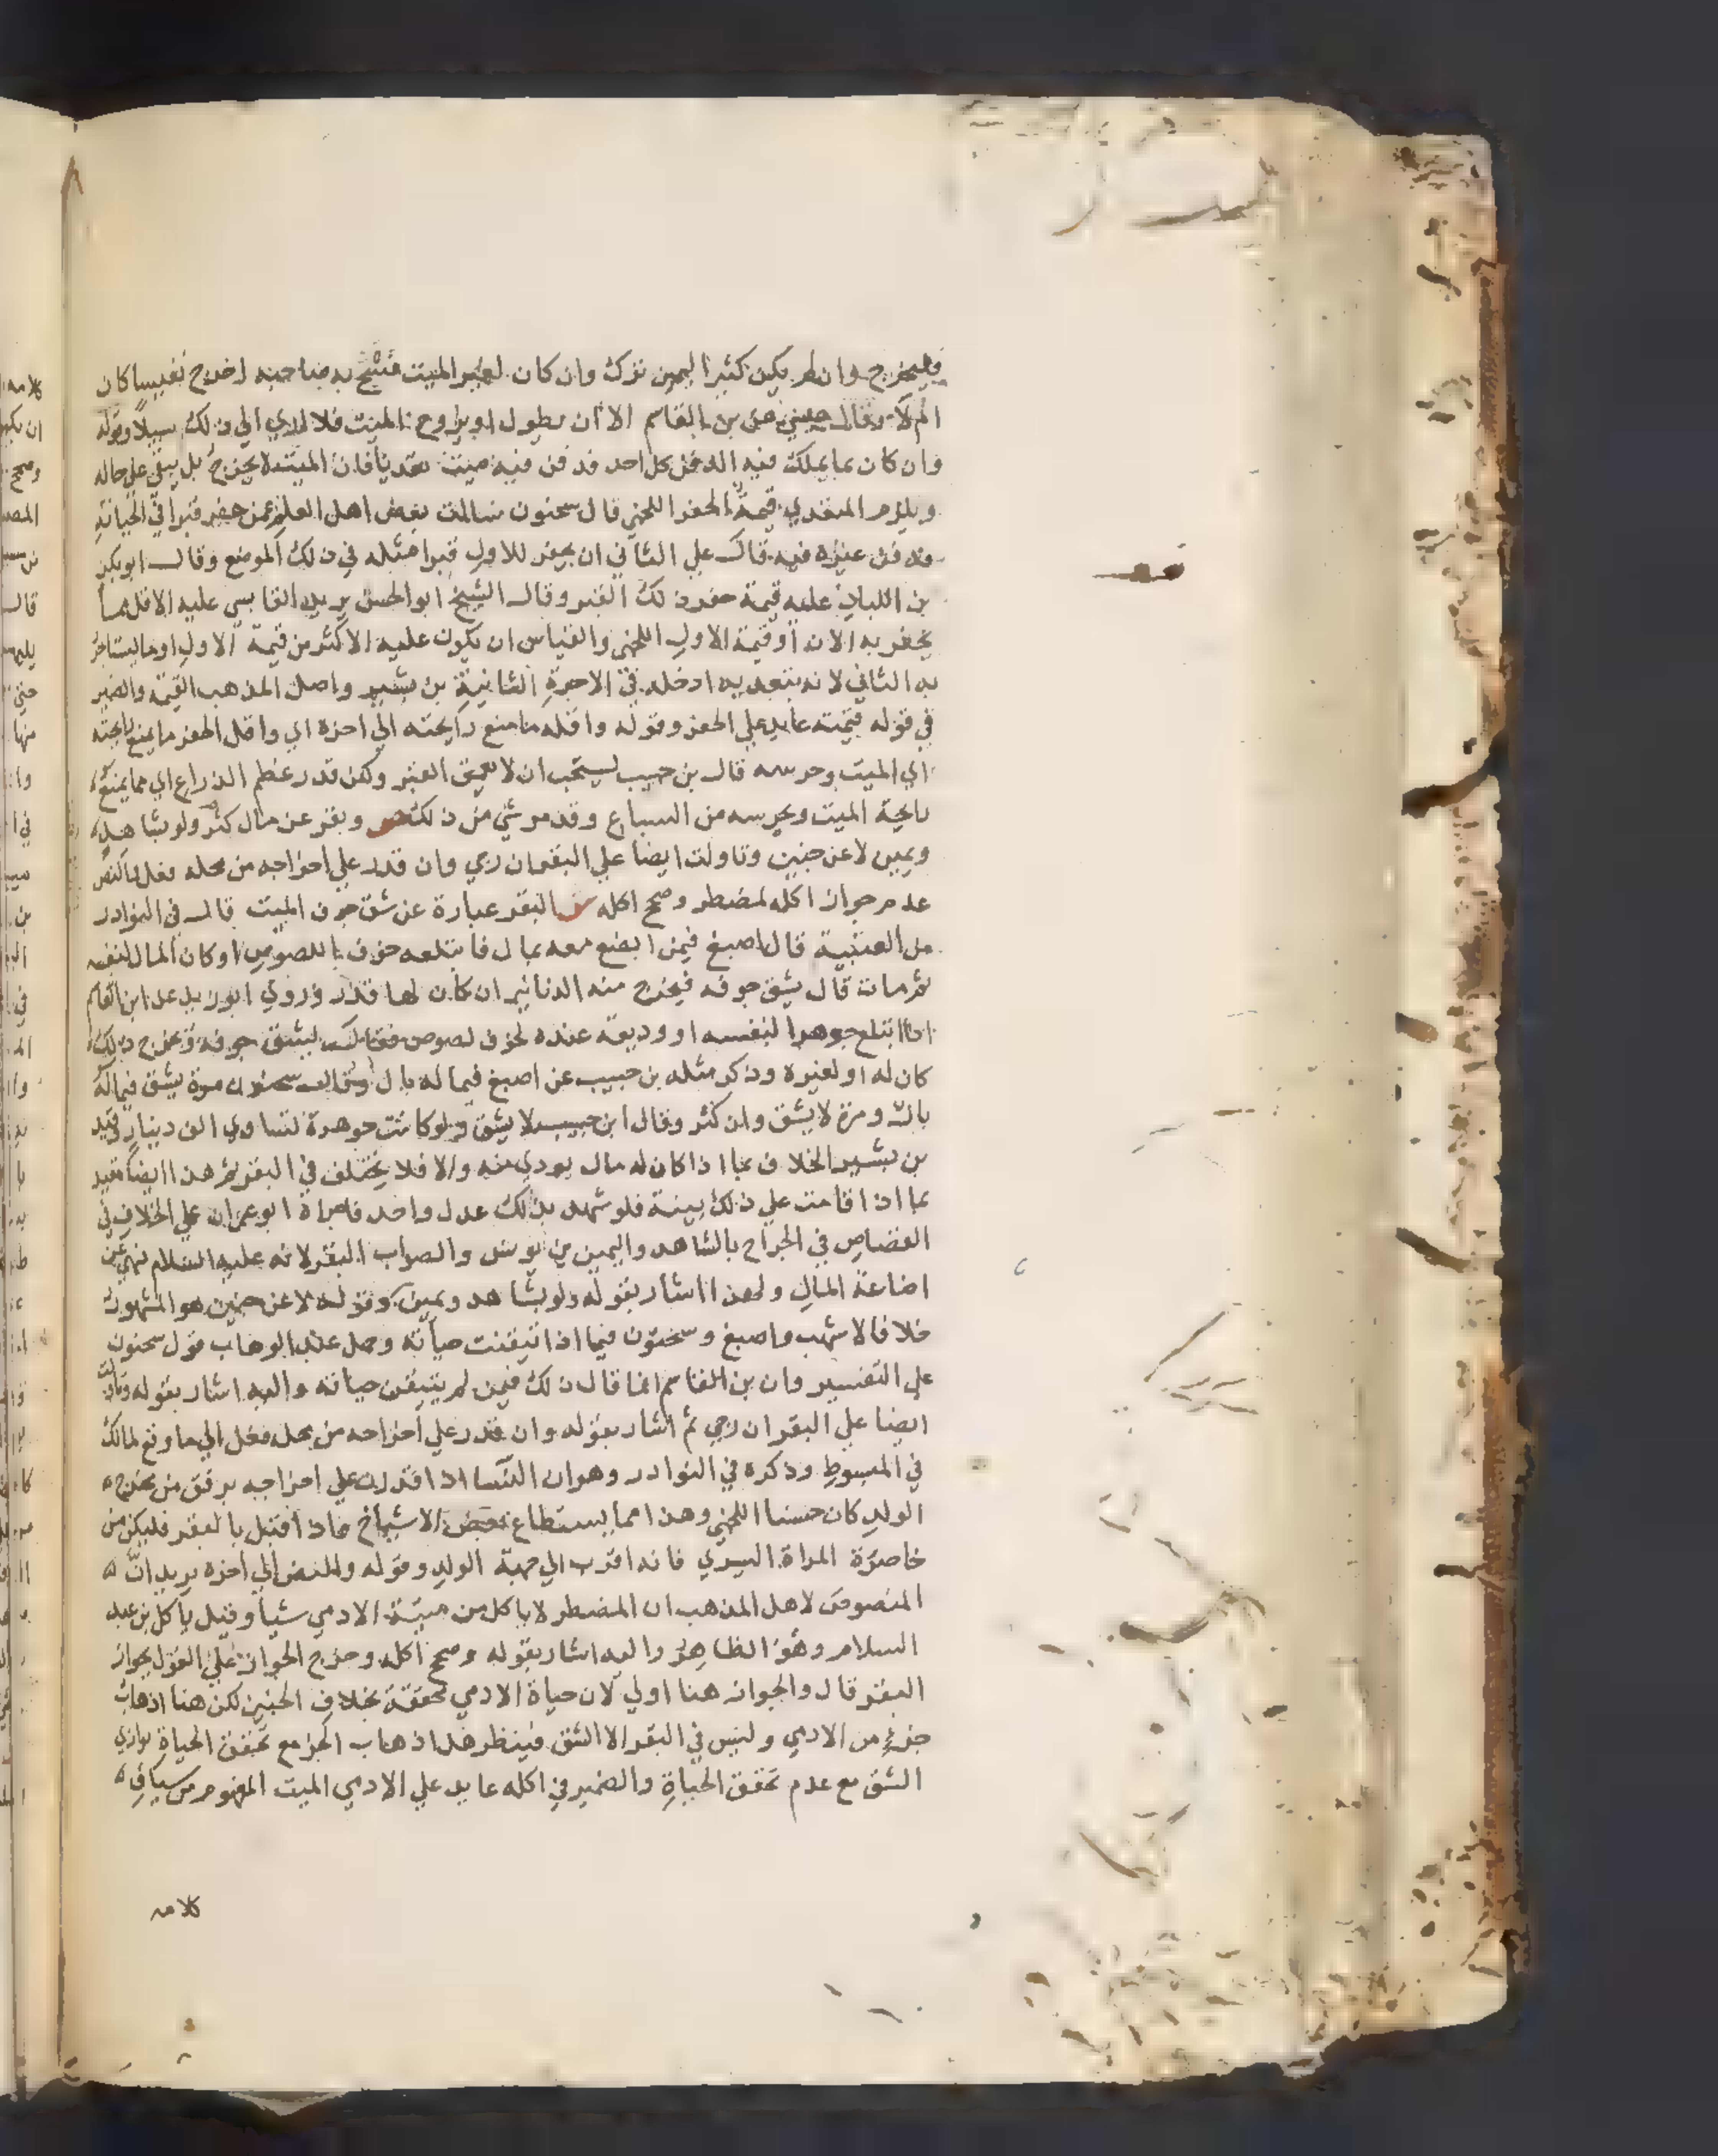 فليخرج وان لم يكن كثير الثمن ترك وان كان لغير الميت فشح به صاحبه اخرج نفيسا كان
ام لا وقال عيسى عن بن القاسم الا ان يطول او يروح الميت فلا اري الي ذلك سبيلا وقوله
وان كان بما يملك فيه الدفن كل احد فدفن فيه ميت تعديا فان الميت لا يخرج بل يبقي علي حاله
ويلزم المتعدي قيمة الحفر اللخمي قال سحنون سالت بعض اهل العلم عمن حفر قبرا في الجبانة
فدفن غيره فيه قال علي الثاني ان يحفر للاول قبرا مثله في ذلك الموضع وقال ابو بكر
بن اللباد عليه قيمة حفر ذلك القبر وقال الشيخ ابو الحسن يريد القابسي عليه الاقل مما
يحفر به الان او قيمة الاول اللخمي والقياس ان يكون عليه الاكثر من قيمة الاول او ما يستاجر
به الثاني لانه بتعديه ادخله في الاجرة الثانية بن بشير واصل المذهب القيمة والضمير
في قوله قيمته عايد علي الحفر وقوله واقله ما منع رايحته الي اخره اي واقل الحفر ما يمنع رايحته
اي الميت وحرسه قال بن حبيب يستحب ان لا يعمق القبر ولكن قدر عظم الذراع اي مما يمنع
رايحة الميت ويحرسه من السباع وقد مر شي من ذلك ص وبقر عن مال كثر ولو بشاهد
ويمين لا عن جنين وتاولت ايضا علي البقر ان رجي وان قدر علي اخراجه من محله فعل والنص
عدم جواز اكله لمضطر وصحح اكله ش البقر عبارة عن شق جوف الميت قال في النوادر
من العتبية قال اصبغ فيمن ابضع معه بمال فابتلعه خوف اللصوص او كان المال لنفسه
ثم مات قال يشق جوفه فيخرج منه الدنانير ان كان لها قدر وروي ابو زيد عن ابن القاسم
اذا ابتلع جوهرا لنفسه او وديعة عنده لخوف لصوص فقال يشق جوفه ويخرج ذلك
كان له او لغيره وذكر مثله بن حبيب عن اصبغ فيما له بال وقال سحنون مرة يشق فيما له
بال ومرة لا يشق وان كثر وقال ابن حبيب لا يشق ولو كانت جوهرة تساوي الف دينار وقيد
بن بشير الخلاف بما اذا كان له مال يودي منه والا فلا يختلف في البقر ثم هذا ايضا مقيد
بما اذا قامت علي ذلك بينة فلو شهد بذلك عدل واحد فاجراه ابو عمران علي الخلاف في
القصاص في الجراح بالشاهد واليمين بن يونس والصواب البقر لانه عليه السلام نهي عن
اضاعة المال ولهذا اشار بقوله ولو بشاهد ويمين وقوله لا عن جنين هو المشهور
خلافا لاشهب واصبغ وسحنون فيما اذا تيقنت حياته وحمل عبد الوهاب قول سحنون
علي التفسير وان بن القاسم انما قال ذلك فيمن لم يتيقن حياته واليه اشار بقوله وتاولت
ايضا علي البقر ان رجي ثم اشار بقوله وان قدر علي اخراجه من محله فعل الي ما وقع لمالك
في المبسوط وذكره في النوادر وهو ان النسا اذا قدرن علي اخراجه برفق من مخرج
الولد كان حسنا اللخمي وهذا مما يستطاع بعض الاشياخ فاذا قيل بالبقر فليكن من
خاصرة المراة اليسري فانه اقرب الي جهة الولد وقوله والنص الي اخره يريد ان
المنصوص لاهل المذهب ان المضطر لا ياكل من ميتة الادمي شيا وقيل ياكل بن عبد
السلام وهو الظاهر واليه اشار بقوله وصحح اكله وخرج الجواز علي القول بجواز
البقر قال والجواز هنا اولي لان حياة الادمي محققة بخلاف الجنين لكن هنا اذهاب
جزء من الادمي وليس في البقر الا الشق فينظر هل اذهاب الجز مع تحقق الحياة يوازي
الشق مع عدم تحقق الحياة والضمير في اكله عايد علي الادمي الميت المفهوم من سياق
كلامه